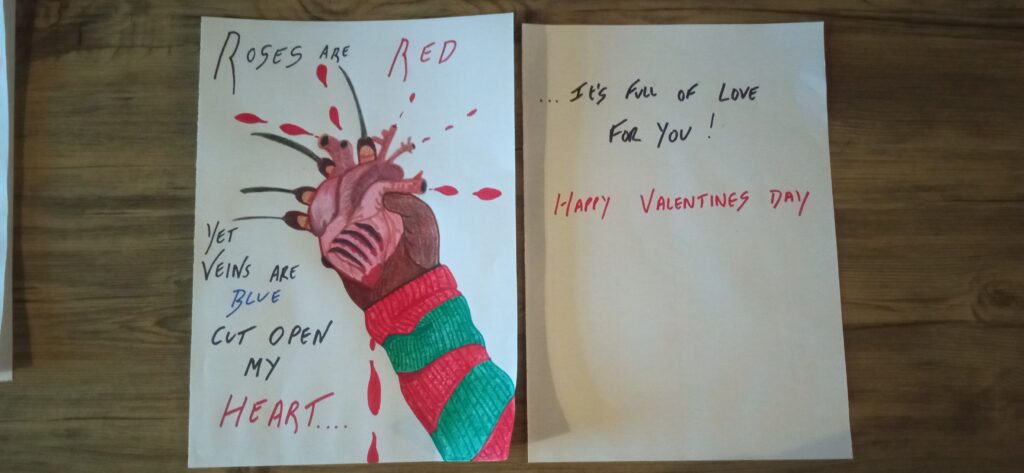 ROSES ARE RED
YET
VEINS ARE
BLUE
CUT OPEN
MY
HEART....
...It's FULL OF LOVE
FOR YOU!
HAPPY VALENTINES DAY